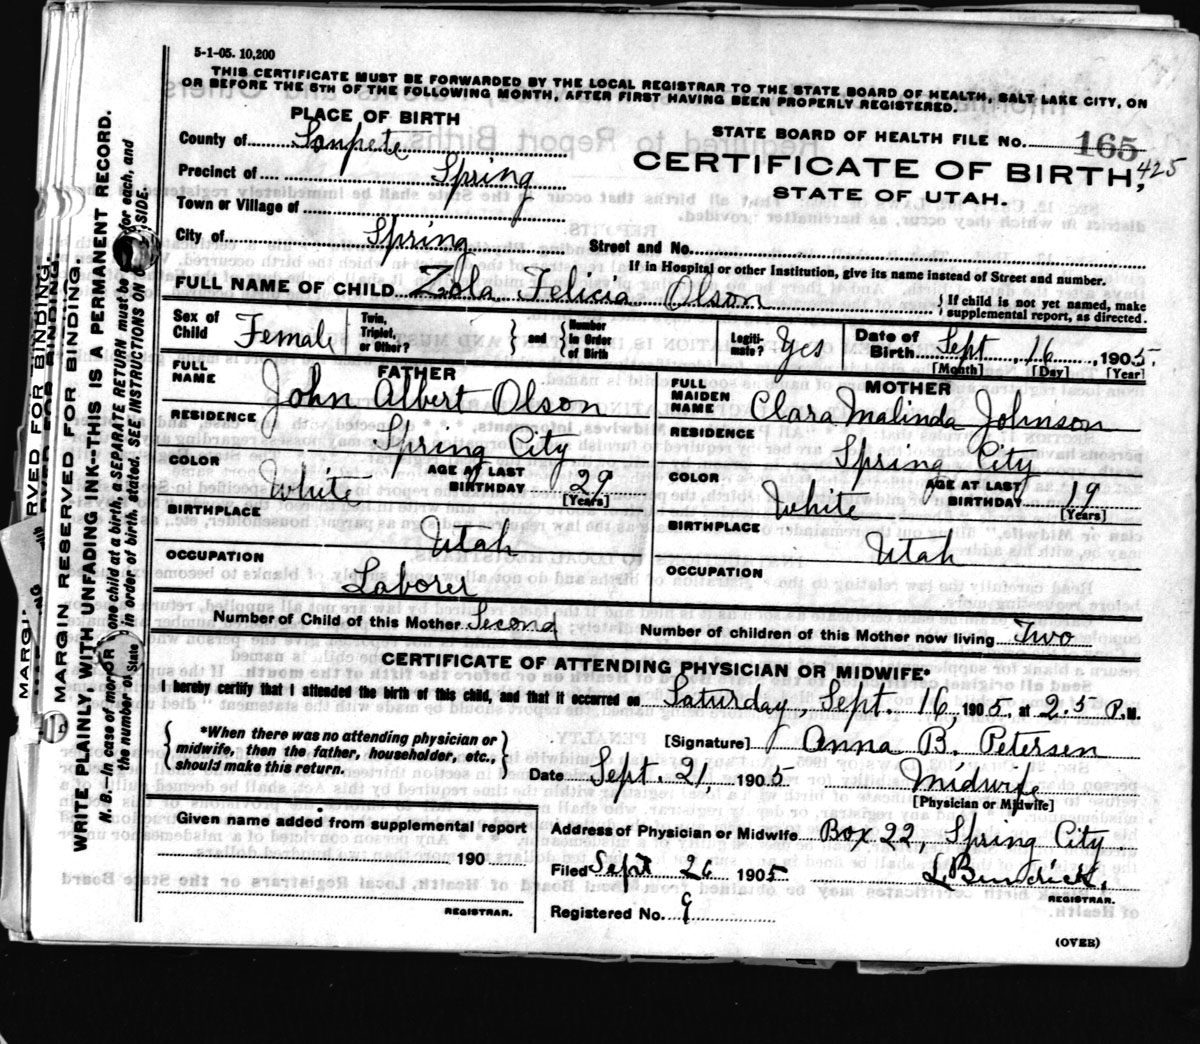 5-1-05. 10,200
THIS CERTIFICATE MUST BE FORWARDED BY THE LOCAL REGISTRAR TO THE STATE BOARD OF HEALTH, SALT LAKE CITY, ON
OR BEFORE THE 5TH OF THE FOLLOWING MONTH, AFTER FIRST HAVING BEEN PROPERLY REGISTERED.
PLACE OF BIRTH
County of Sanpete
Precinct of Spring
Town or Village of
City of Spring
STATE BOARD OF HEALTH FILE No. 165
425
CERTIFICATE OF BIRTH,
STATE OF UTAH.
Street and No.
If in Hospital or other Institution, give its name instead of Street and number.
FULL NAME OF CHILD Zola Felicia Olson
If child is not yet named, make
supplemental report, as directed.
Sex of Child Female
Twin, Triplet, or Other?
and
Number in Order of Birth
Legitimate? Yes
Date of Birth Sept 16, 1905
[Month] [Day] [Year]
FATHER
FULL NAME John Albert Olson
RESIDENCE Spring City
COLOR White
AGE AT LAST BIRTHDAY 29
[Years]
BIRTHPLACE Utah
OCCUPATION Laborer
MOTHER
FULL MAIDEN NAME Clara Malinda Johnson
RESIDENCE Spring City
COLOR White
AGE AT LAST BIRTHDAY 19
[Years]
BIRTHPLACE Utah
OCCUPATION
Number of Child of this Mother Second
Number of children of this Mother now living Two
CERTIFICATE OF ATTENDING PHYSICIAN OR MIDWIFE*
I hereby certify that I attended the birth of this child, and that it occurred on Saturday, Sept. 16, 1905, at 2.5 P.M.
*When there was no attending physician or
midwife, then the father, householder, etc.,
should make this return.
[Signature] Anna B. Petersen
Date Sept. 21, 1905
Midwife
[Physician or Midwife]
Given name added from supplemental report
190
REGISTRAR.
Address of Physician or Midwife Box 22, Spring City
Filed Sept 26 1905
REGISTRAR.
Registered No. 9
(OVER)
MARGIN RESERVED FOR BINDING.
WRITE PLAINLY, WITH UNFADING INK--THIS IS A PERMANENT RECORD.
N. B.--In case of more one child at a birth, a SEPARATE RETURN must be for each, and
the number of in order of birth, stated. SEE INSTRUCTIONS ON SIDE.